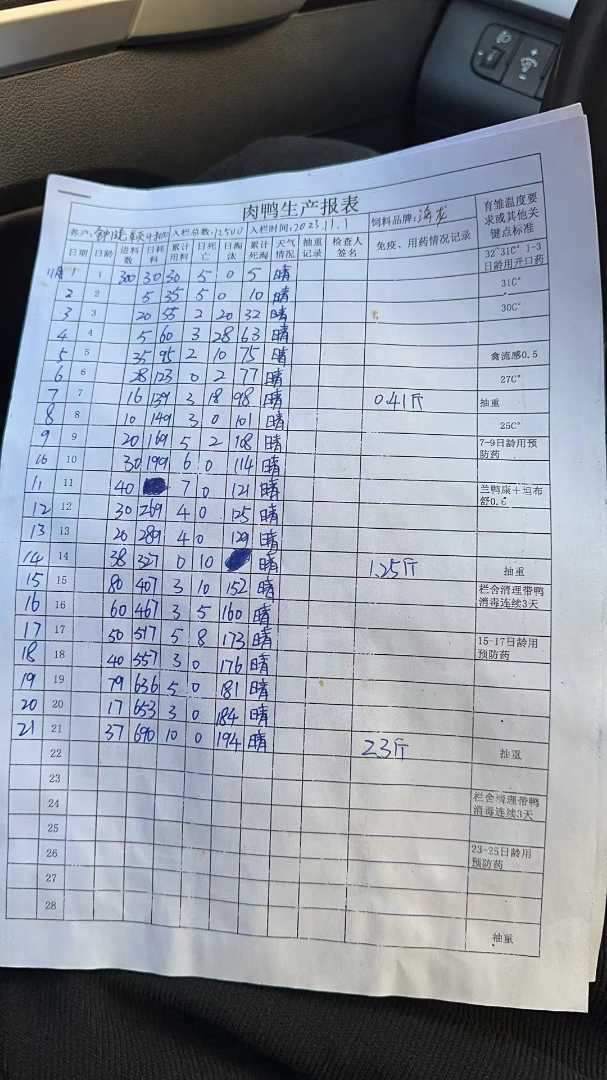 肉鸭生产报表
客户: 入栏总数:12500 入栏时间:2023.11.1 饲料品牌:海龙 育雏温度要求或其他关键点标准
日期 日龄 进料数 日耗料 累计用料 日死亡 日淘汰 累计死淘 天气情况 抽重记录 检查人签名 免疫、用药情况记录
11月1 1 300 30 30 5 0 5 晴 32~31C° 1-3日龄用开口药
2 2 5 35 5 0 10 晴 31C°
3 3 20 55 2 20 32 晴 30C°
4 4 5 60 3 28 63 晴
5 5 35 95 2 10 75 晴 禽流感0.5
6 6 28 123 0 2 77 晴 27C°
7 7 16 139 3 18 98 晴 0.41斤 抽重
8 8 10 149 3 0 101 晴 25C°
9 9 20 169 5 2 108 晴 7-9日龄用预防药
10 10 30 199 6 0 114 晴
11 11 40 7 0 121 晴 兰鸭康+坦布舒0.6
12 12 30 269 4 0 125 晴
13 13 20 289 4 0 129 晴
14 14 38 327 0 10 晴 1.25斤 抽重
15 15 80 407 3 10 152 晴 栏舍清理带鸭消毒连续3天
16 16 60 467 3 5 160 晴
17 17 50 517 5 8 173 晴 15-17日龄用预防药
18 18 40 557 3 0 176 晴
19 19 79 636 5 0 181 晴
20 20 17 653 3 0 184 晴
21 21 37 690 10 0 194 晴 2.3斤 抽重
22
23
24 栏舍清理带鸭消毒连续3天
25
26 23-25日龄用预防药
27
28 抽重